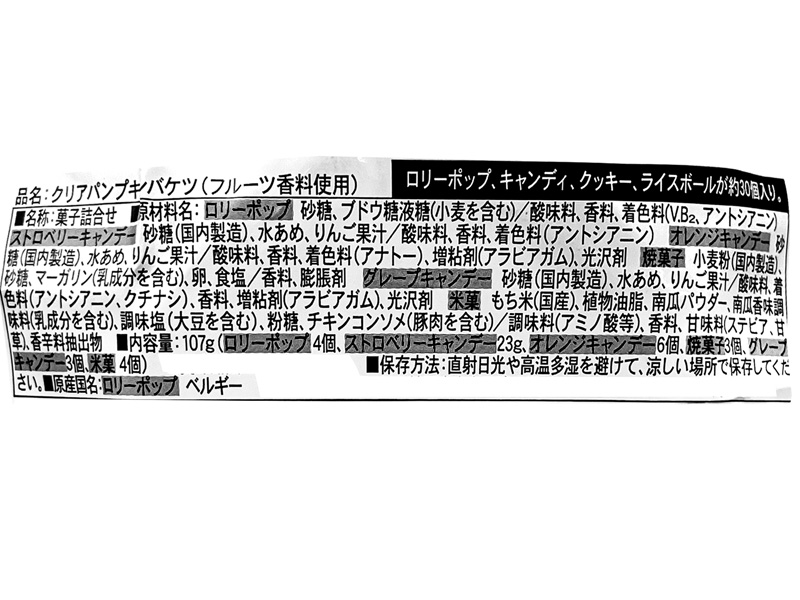 品名：クリアパンプキンバケツ（フルーツ香料使用）
ロリーポップ、キャンディ、クッキー、ライスボールが約30個入り。
■名称：菓子詰合せ ■原材料名：ロリーポップ 砂糖、ブドウ糖液糖(小麦を含む)／酸味料、香料、着色料(V.B₂、アントシアニン)
ストロベリーキャンデー 砂糖(国内製造)、水あめ、りんご果汁／酸味料、香料、着色料(アントシアニン) オレンジキャンデー 砂
糖(国内製造)、水あめ、りんご果汁／酸味料、香料、着色料(アナトー)、増粘剤(アラビアガム)、光沢剤 焼菓子 小麦粉(国内製造)、
砂糖、マーガリン(乳成分を含む)、卵、食塩／香料、膨脹剤 グレープキャンデー 砂糖(国内製造)、水あめ、りんご果汁／酸味料、着
色料(アントシアニン、クチナシ)、香料、増粘剤(アラビアガム)、光沢剤 米菓 もち米(国産)、植物油脂、南瓜パウダー、南瓜香味調
味料(乳成分を含む)、調味塩(大豆を含む)、粉糖、チキンコンソメ(豚肉を含む)／調味料(アミノ酸等)、香料、甘味料(ステビア、甘
草)、香辛料抽出物 ■内容量：107g(ロリーポップ 4個、ストロベリーキャンデー23g、オレンジキャンデー6個、焼菓子3個、グレープ
キャンデー3個、米菓 4個) ■保存方法：直射日光や高温多湿を避けて、涼しい場所で保存してくだ
さい。■原産国名：ロリーポップ ベルギー